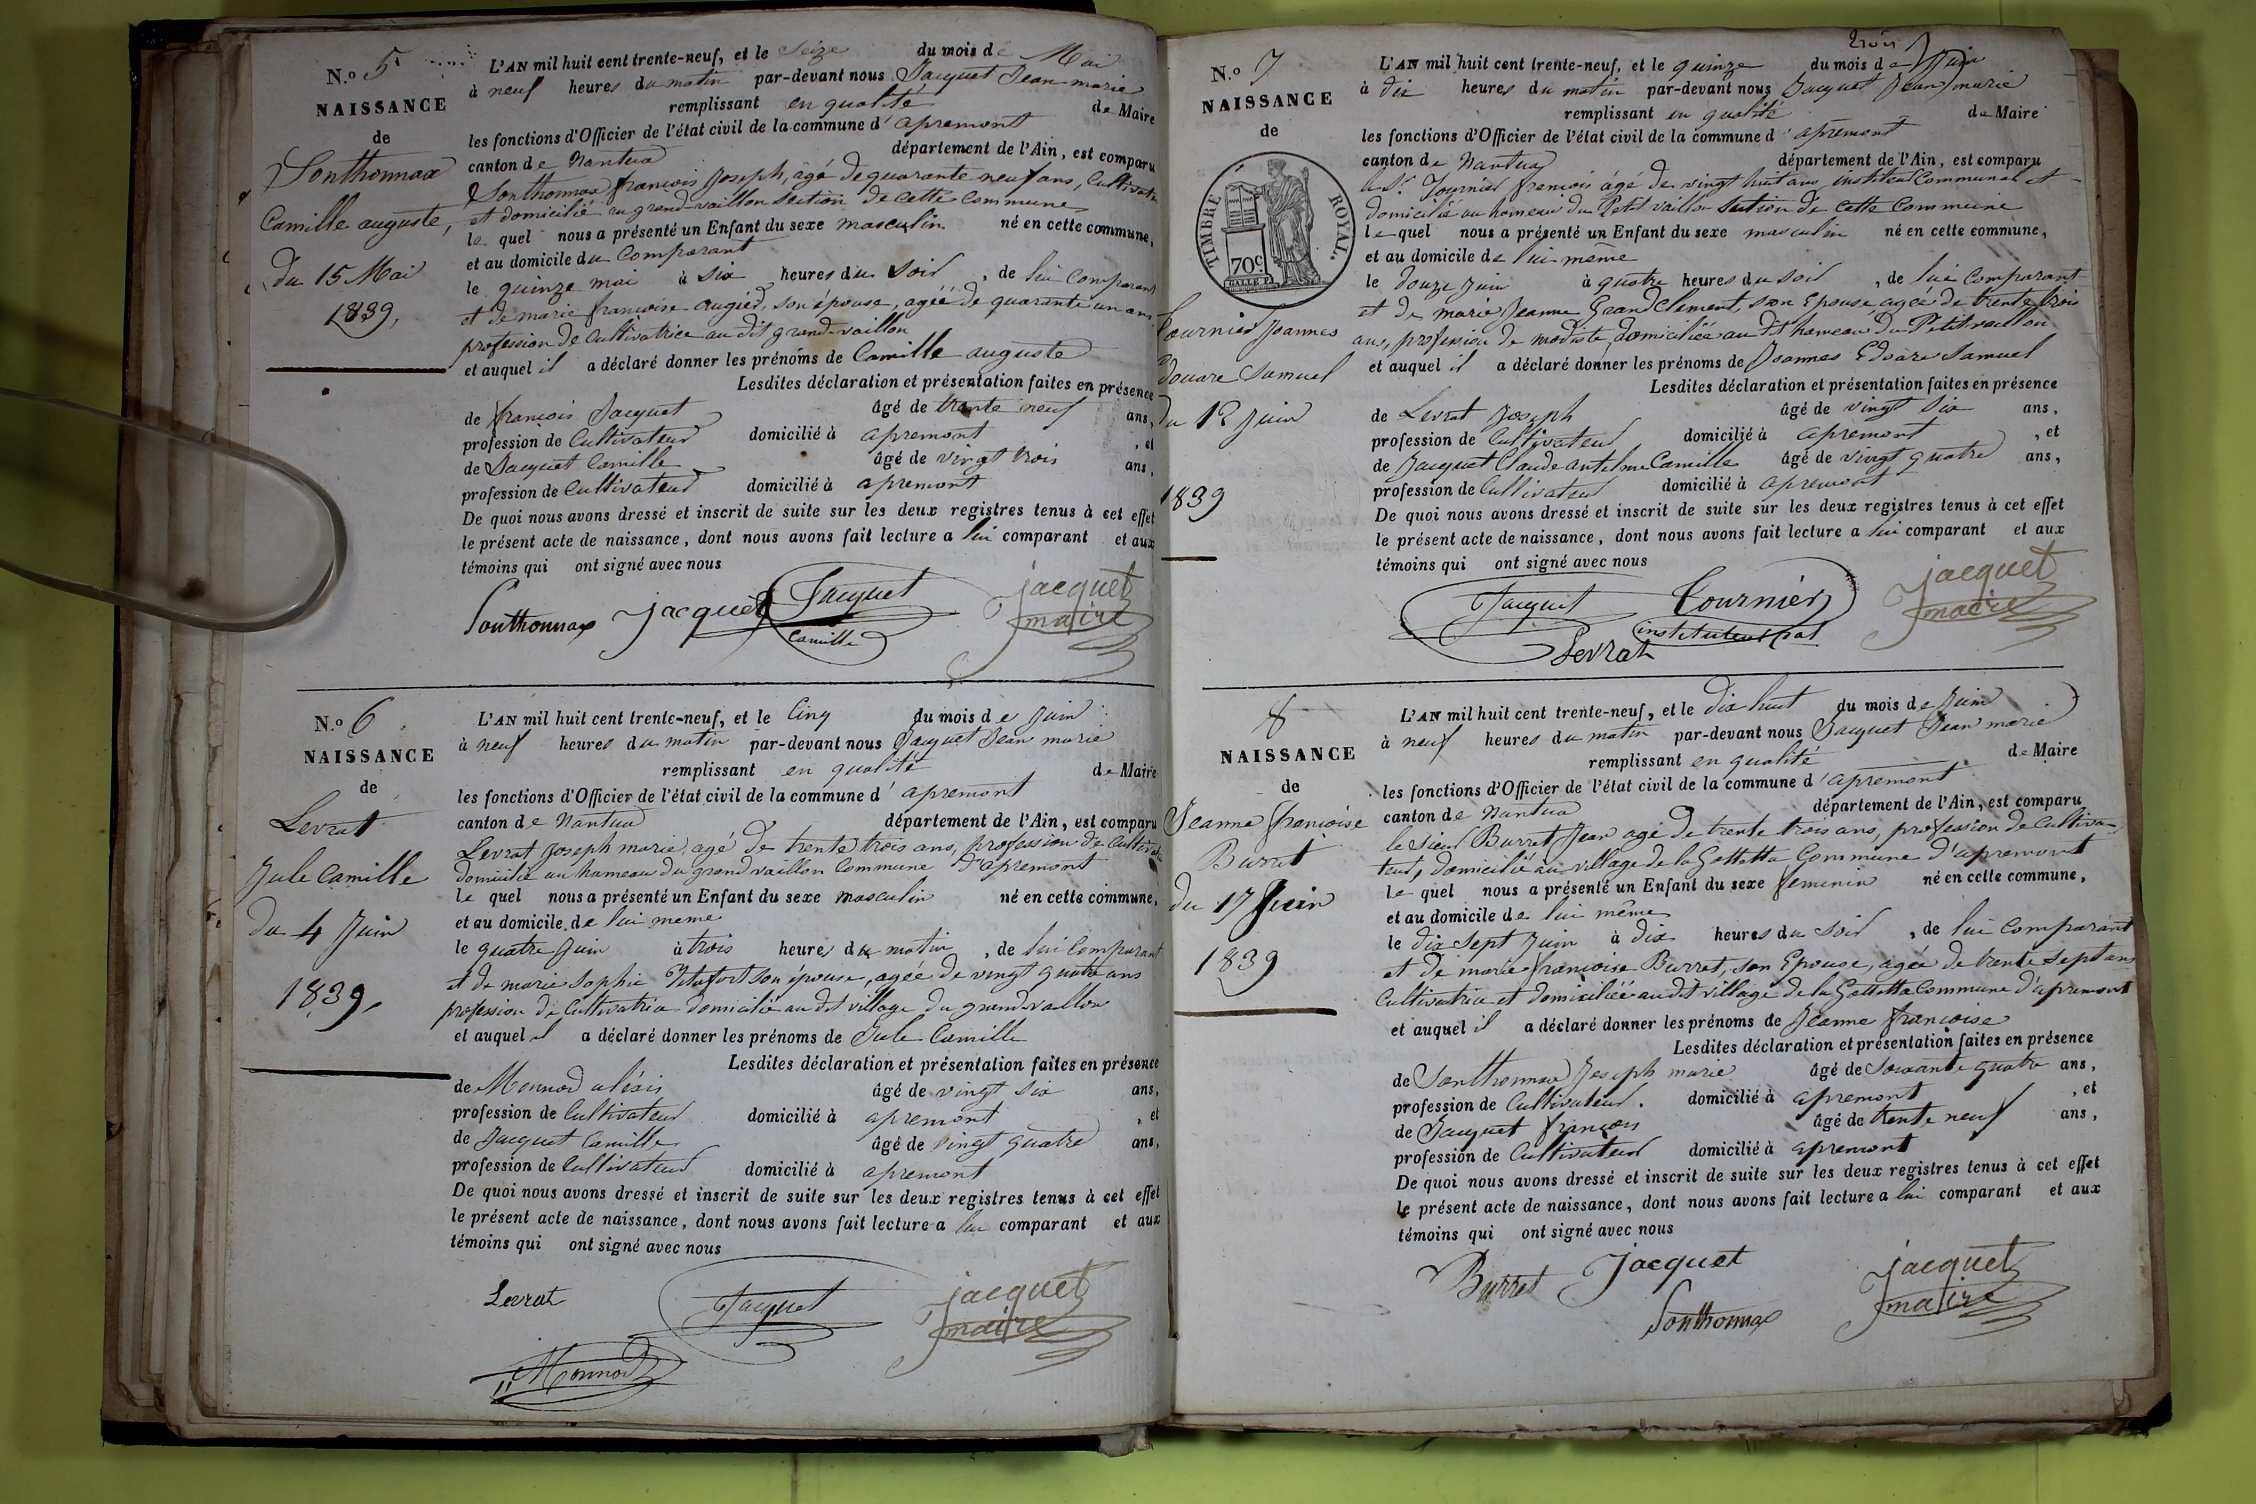 N.o 5
NAISSANCE
de
Sonthonnax
Camille auguste,
du 15 Mai
1839,
L'AN mil huit cent trente-neuf, et le seize du mois de Mai
à neuf heures du matin par-devant nous Jacquet Jean marie
remplissant en qualité de Maire
les fonctions d'Officier de l'état civil de la commune d' apremont
canton de Nantua département de l'Ain, est comparu
Sonthonnax françois Joseph, agé de quarante neuf ans, Cultivateur
et domicilié au grand-vaillon section de cette Commune
le quel nous a présenté un Enfant du sexe masculin né en cette commune,
et au domicile du Comparant
le quinze mai à six heures du soir, de lui Comparant
et de marie françoise augied, son épouse, agée de quarante un ans
profession de Cultivatrice au dit grand-vaillon
et auquel il a déclaré donner les prénoms de Camille auguste
Lesdites déclaration et présentation faites en présence
de françois Jacquet âgé de trente neuf ans,
profession de Cultivateur domicilié à apremont, et
de Jacquet Camille âgé de vingt trois ans,
profession de Cultivateur domicilié à apremont
De quoi nous avons dressé et inscrit de suite sur les deux registres tenus à cet effet
le présent acte de naissance, dont nous avons fait lecture a lui comparant et aux
témoins qui ont signé avec nous
Sonthonnax jacquet Jacquet jacquet
Camille maire
N.o 6
NAISSANCE
de
Levrat
Jule Camille
du 4 Juin
1839,
L'AN mil huit cent trente-neuf, et le Cinq du mois de Juin
à neuf heures du matin par-devant nous Jacquet Jean marie
remplissant en qualité de Maire
les fonctions d'Officier de l'état civil de la commune d' apremont
canton de Nantua département de l'Ain, est comparu
Levrat Joseph marie, agé de trente trois ans, profession de Cultivateur
domicilié au hameau du grand vaillon Commune d'apremont
le quel nous a présenté un Enfant du sexe masculin né en cette commune,
et au domicile de lui meme
le quatre Juin à trois heures du matin, de lui Comparant
et de marie Sophie son épouse, agée de vingt quatre ans
profession de Cultivatrice domiciliée au dit village du grand vallon
et auquel il a déclaré donner les prénoms de Jule Camille
Lesdites déclaration et présentation faites en présence
de Monnod aléxis âgé de vingt six ans,
profession de Cultivateur domicilié à apremont, et
de Jacquet Camille âgé de vingt quatre ans,
profession de Cultivateur domicilié à apremont
De quoi nous avons dressé et inscrit de suite sur les deux registres tenus à cet effet
le présent acte de naissance, dont nous avons fait lecture a lui comparant et aux
témoins qui ont signé avec nous
Levrat Jacquet jacquet
maire
Monnod
trois
N.o 7
NAISSANCE
de
TIMBRE ROYAL.
70c.
Tournier Joannes
Edouare Samuel
du 12 Juin
1839
L'AN mil huit cent trente-neuf, et le quinze du mois de Juin
à dix heures du matin par-devant nous Jacquet Jean marie
remplissant en qualité de Maire
les fonctions d'Officier de l'état civil de la commune d' apremont
canton de Nantua département de l'Ain, est comparu
le Sr. Tournier françois âgé de vingt huit ans instituteur Communal et
domicilié au hameau du Petit vaillon section de cette Commune
le quel nous a présenté un Enfant du sexe masculin né en cette commune,
et au domicile de lui même
le douze juin à quatre heures du soir, de lui Comparant
et de marie Jeanne Grandclement, son Epouse, agée de trente trois
ans, profession de modiste, domiciliée au dit hameau du Petit vaillon
et auquel il a déclaré donner les prénoms de Joannes Edoare Samuel
Lesdites déclaration et présentation faites en présence
de Levrat Joseph âgé de vingt six ans,
profession de Cultivateur domicilié à apremont, et
de Jacquet Claude antelme Camille âgé de vingt quatre ans,
profession de Cultivateur domicilié à apremont
De quoi nous avons dressé et inscrit de suite sur les deux registres tenus à cet effet
le présent acte de naissance, dont nous avons fait lecture a lui comparant et aux
témoins qui ont signé avec nous
Jacquet Tournier jacquet
Levrat maire
8
NAISSANCE
de
Jeanne françoise
Burret
du 17 Juin
1839
L'AN mil huit cent trente-neuf, et le dix huit du mois de Juin
à neuf heures du matin par-devant nous Jacquet Jean marie
remplissant en qualité de Maire
les fonctions d'Officier de l'état civil de la commune d' apremont
canton de Nantua département de l'Ain, est comparu
le sieur Burret Jean agé de trente trois ans, profession de Cultiva-
teur, domicilié au village de la Gottetta Commune d'apremont
le quel nous a présenté un Enfant du sexe feminin né en cette commune,
et au domicile de lui même
le dix sept Juin à dix heures du soir, de lui Comparant
et de marie françoise Burret, son Epouse, agée de trente sept ans
Cultivatrice et domiciliée au dit village de la Gottetta Commune d'apremont
et auquel il a déclaré donner les prénoms de Jeanne françoise
Lesdites déclaration et présentation faites en présence
de Sonthonnax Joseph marie âgé de soixante quatre ans,
profession de Cultivateur. domicilié à apremont, et
de Jacquet françois âgé de trente neuf ans,
profession de Cultivateur domicilié à apremont
De quoi nous avons dressé et inscrit de suite sur les deux registres tenus à cet effet
le présent acte de naissance, dont nous avons fait lecture a lui comparant et aux
témoins qui ont signé avec nous
Burret Jacquet jacquet
Sonthonnax maire